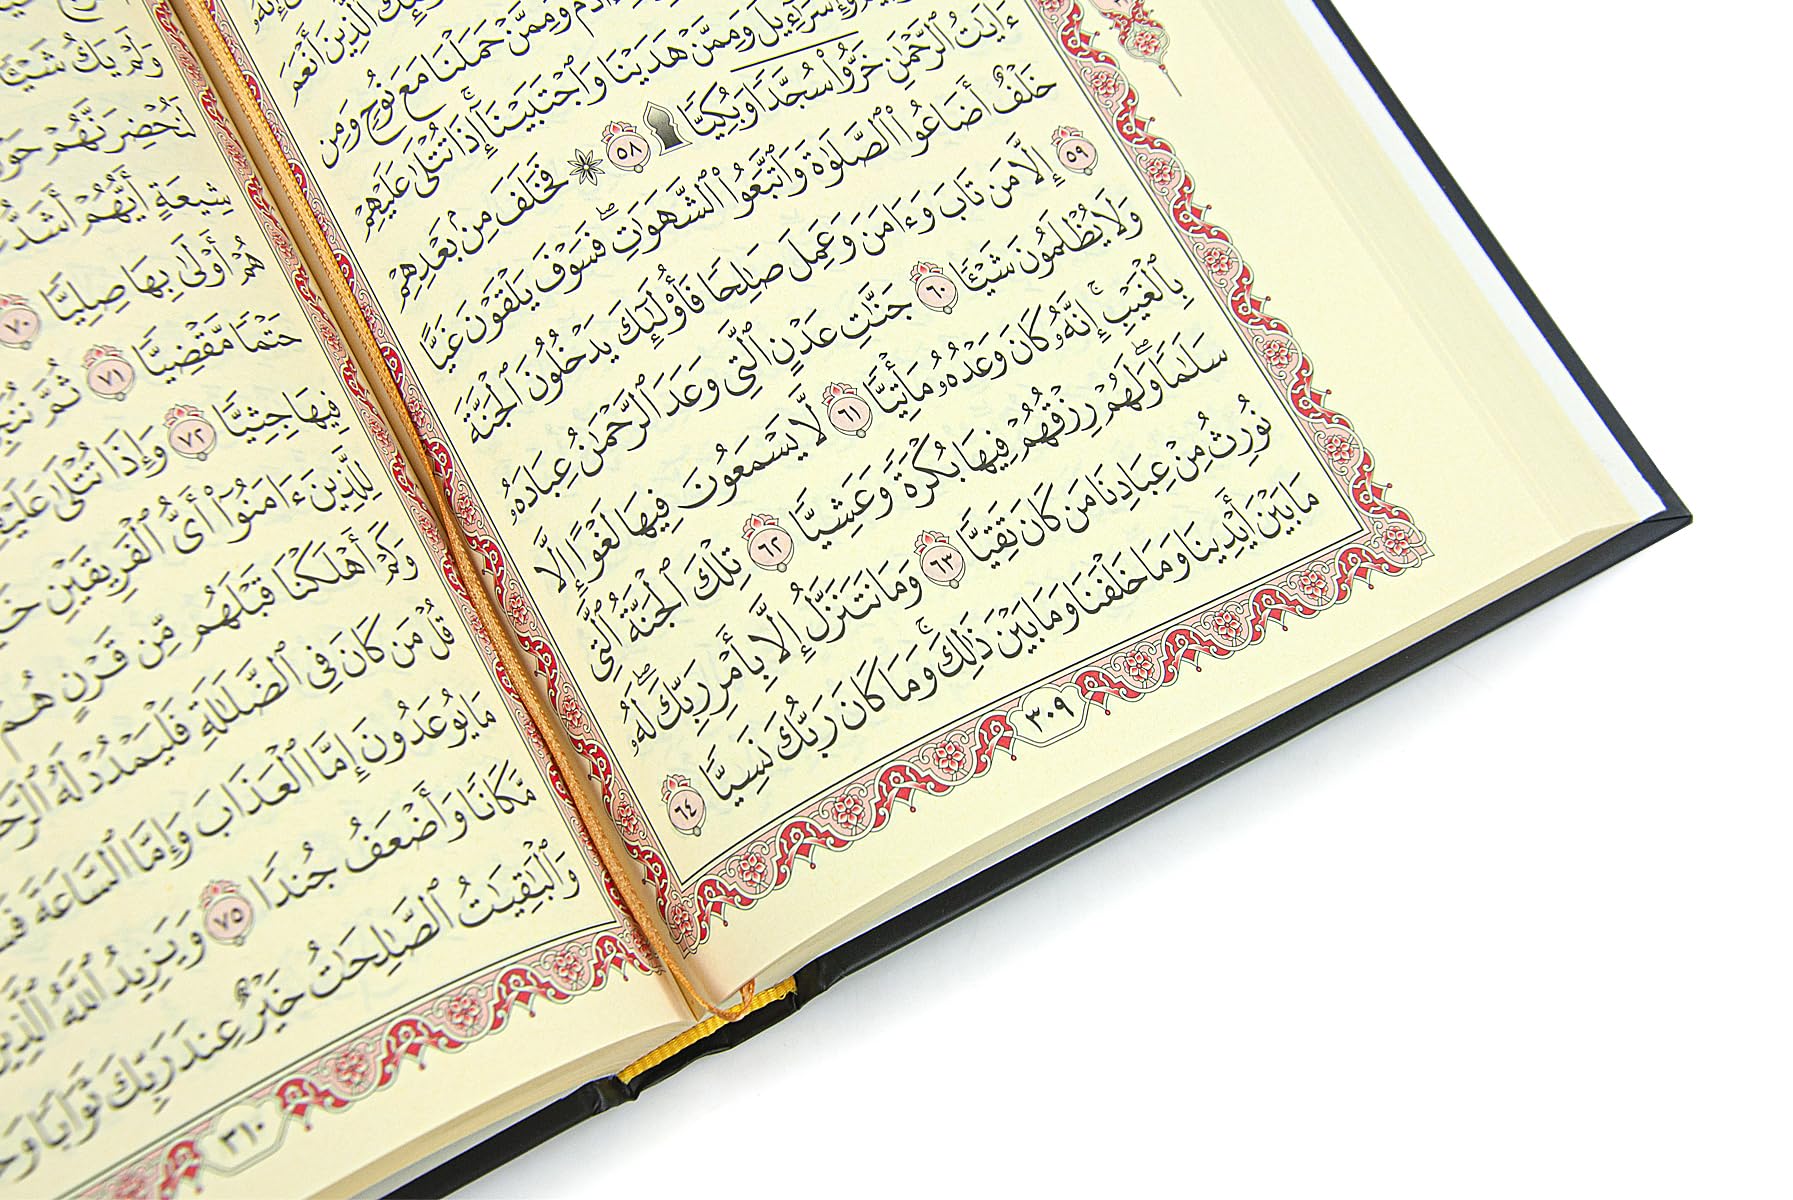 أَنْعَمَ
ءَادَمَ وَمِمَّنْ حَمَلْنَا مَعَ نُوحٍ وَمِن
وَإِسْرَٰٓءِيلَ وَمِمَّنْ هَدَيْنَا وَٱجْتَبَيْنَآ ۚ إِذَا تُتْلَىٰ عَلَيْهِمْ
ءَايَٰتُ ٱلرَّحْمَٰنِ خَرُّوا۟ سُجَّدًا وَبُكِيًّا ۩ ٥٨ ۞ فَخَلَفَ مِنۢ بَعْدِهِمْ
خَلْفٌ أَضَاعُوا۟ ٱلصَّلَوٰةَ وَٱتَّبَعُوا۟ ٱلشَّهَوَٰتِ ۖ فَسَوْفَ يَلْقَوْنَ غَيًّا
٥٩ إِلَّا مَن تَابَ وَءَامَنَ وَعَمِلَ صَٰلِحًا فَأُو۟لَٰٓئِكَ يَدْخُلُونَ ٱلْجَنَّةَ
وَلَا يُظْلَمُونَ شَيْـًٔا ٦٠ جَنَّٰتِ عَدْنٍ ٱلَّتِى وَعَدَ ٱلرَّحْمَٰنُ عِبَادَهُۥ
بِٱلْغَيْبِ ۚ إِنَّهُۥ كَانَ وَعْدُهُۥ مَأْتِيًّا ٦١ لَّا يَسْمَعُونَ فِيهَا لَغْوًا إِلَّا
سَلَٰمًا ۖ وَلَهُمْ رِزْقُهُمْ فِيهَا بُكْرَةً وَعَشِيًّا ٦٢ تِلْكَ ٱلْجَنَّةُ ٱلَّتِى
نُورِثُ مِنْ عِبَادِنَا مَن كَانَ تَقِيًّا ٦٣ وَمَا نَتَنَزَّلُ إِلَّا بِأَمْرِ رَبِّكَ ۖ لَهُۥ
مَا بَيْنَ أَيْدِينَا وَمَا خَلْفَنَا وَمَا بَيْنَ ذَٰلِكَ ۚ وَمَا كَانَ رَبُّكَ نَسِيًّا ٦٤
٣٠٩
وَلَمْ يَكُ شَيْـًٔا
لَنُحْضِرَنَّهُمْ حَوْلَ
شِيعَةٍ أَيُّهُمْ أَشَدُّ
هُمْ أَوْلَىٰ بِهَا صِلِيًّا ٧٠
حَتْمًا مَّقْضِيًّا ٧١ ثُمَّ
فِيهَا جِثِيًّا ٧٢ وَإِذَا تُتْلَىٰ
لِلَّذِينَ ءَامَنُوٓا۟ أَىُّ ٱلْفَرِيقَيْنِ
وَكَمْ أَهْلَكْنَا قَبْلَهُم مِّن قَرْنٍ هُمْ
قُلْ مَن كَانَ فِى ٱلضَّلَٰلَةِ فَلْيَمْدُدْ لَهُ
مَا يُوعَدُونَ إِمَّا ٱلْعَذَابَ وَإِمَّا ٱلسَّاعَةَ
مَّكَانًا وَأَضْعَفُ جُندًا ٧٥ وَيَزِيدُ ٱللَّهُ ٱلَّذِينَ
وَٱلْبَٰقِيَٰتُ ٱلصَّٰلِحَٰتُ خَيْرٌ عِندَ رَبِّكَ ثَوَابًا
٣١٠